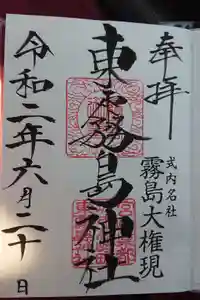 奉拝
式内名社
霧島大権現
東霧島神社
令和二年六月二十日